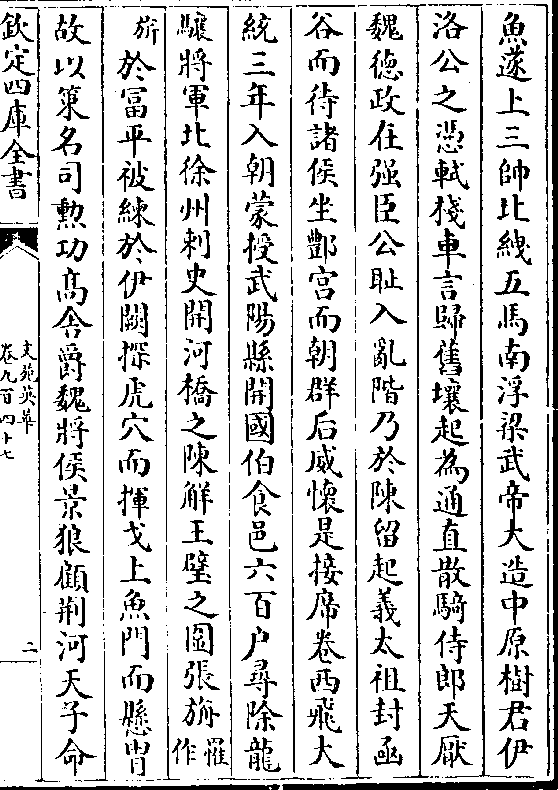 魚遂上三帥北綫五馬南浮梁武帝大造中原樹君伊
洛公之憑軾棧車言歸舊壤起為通直散騎侍郎天厭
魏徳政在强臣公恥入亂階乃於陳留起義太祖封函
谷而待諸侯坐酆宫而朝群后威懷是接席卷西飛大
統三年入朝蒙授武陽縣開國伯食邑六百户尋除龍
驤將軍北徐州刺史開河橋之陳解王壁之圍張旃罹作
旂於冨平被練於伊闕探虎穴而揮戈上魚門而懸胄
故以策名司勲功髙舍爵魏將侯景狼顧荆河天子命
欽定四庫全書
文苑英華
卷九百四十七
二